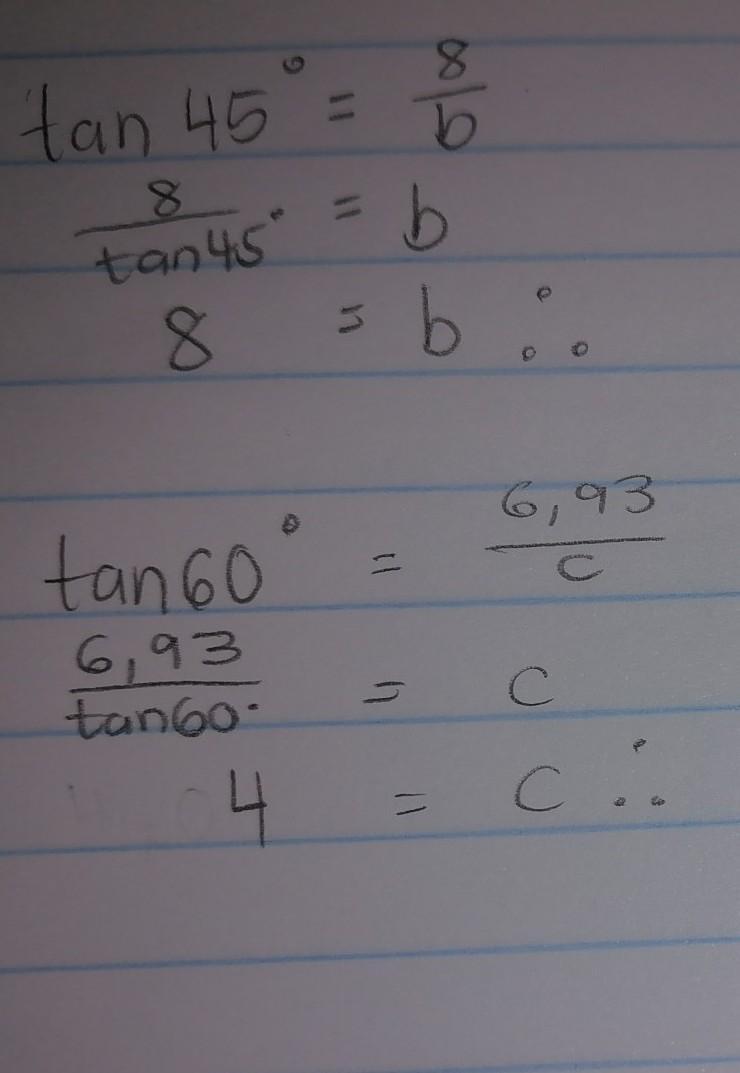 tan 45° = 8/b
8/tan45° = b
8 = b ∴
tan60° = 6,93/c
6,93/tan60° = c
4 = c ∴